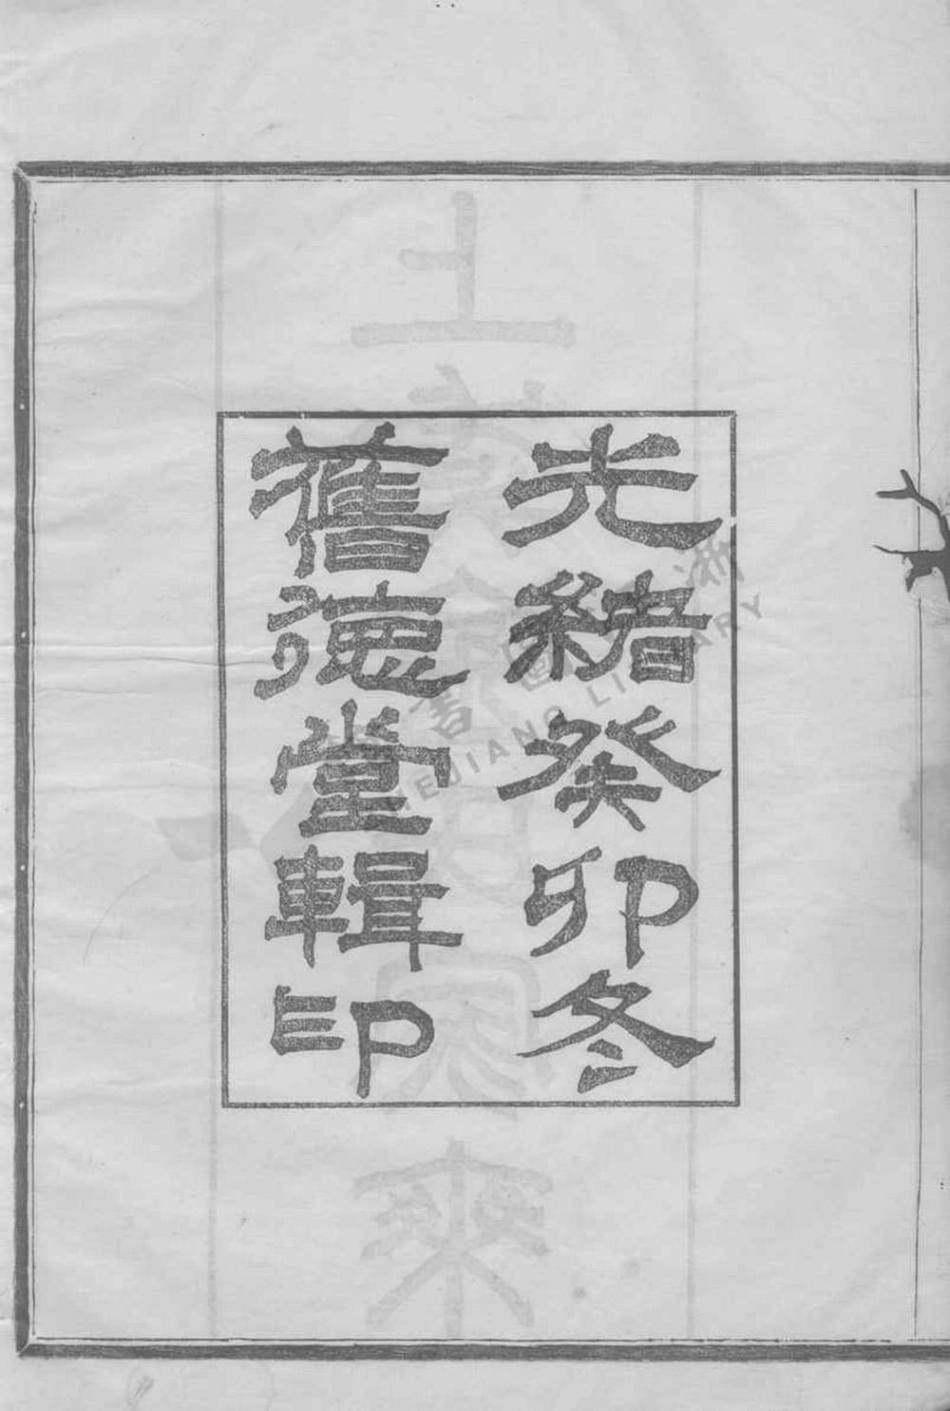 光緒癸卯冬
舊德堂輯印